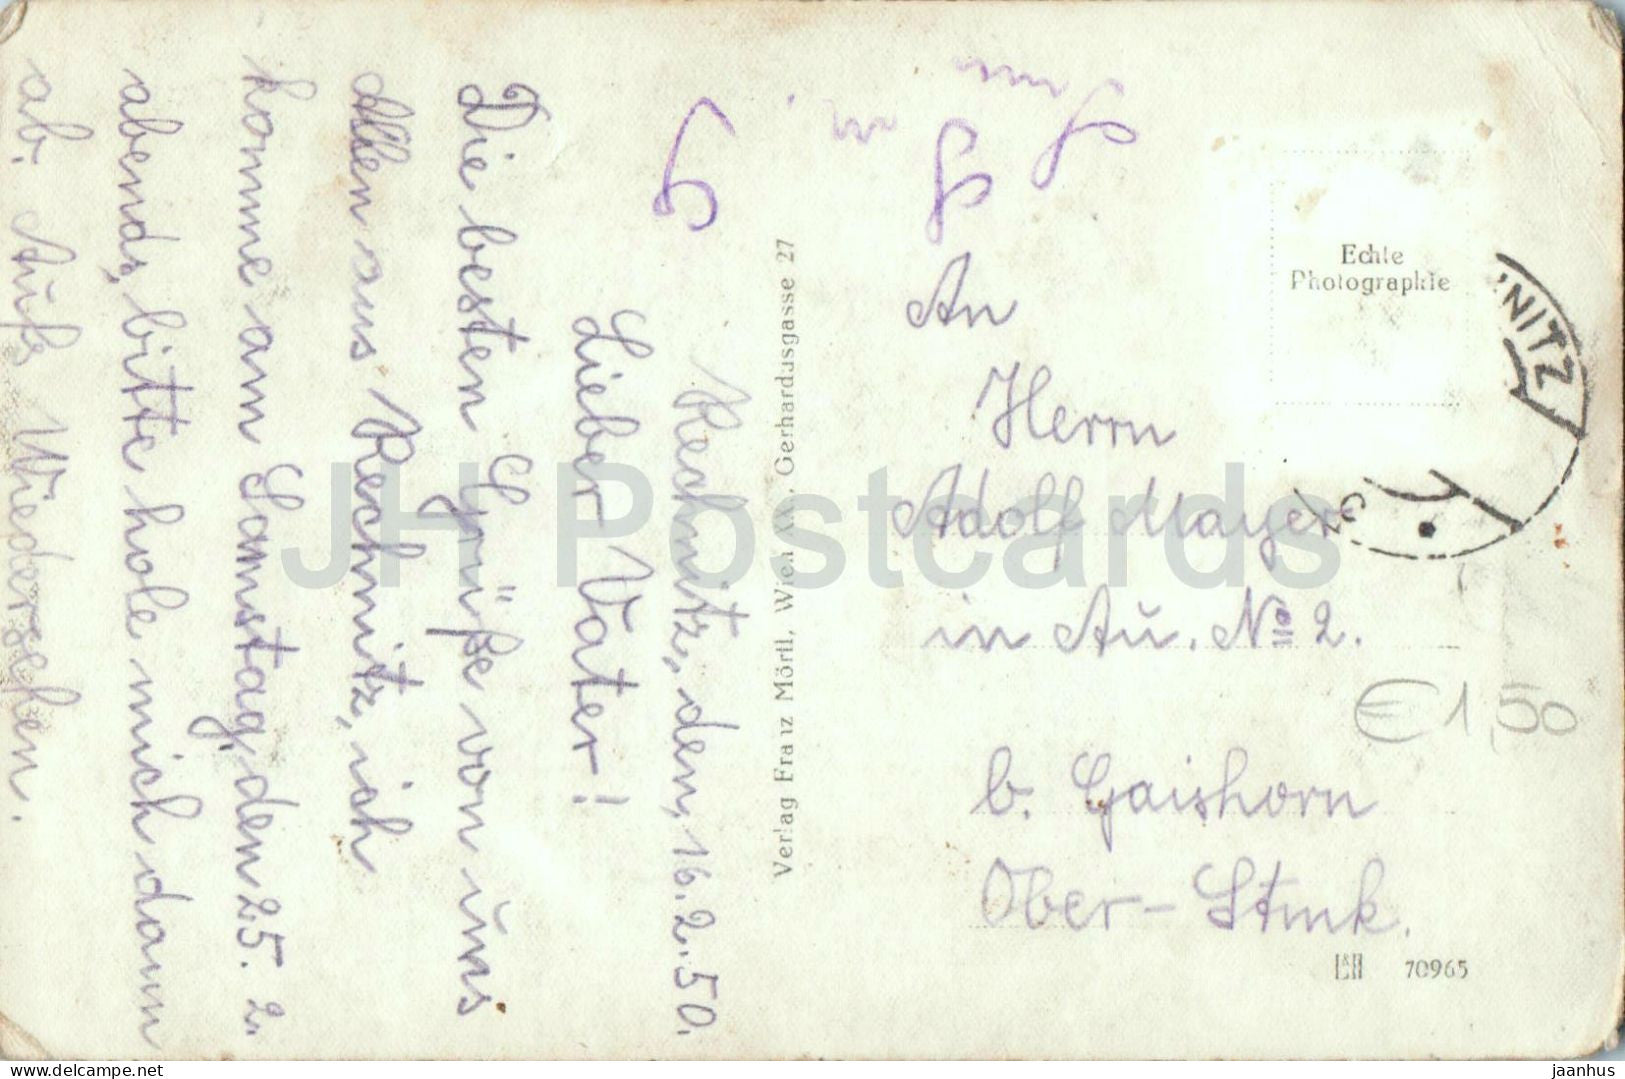 Rechnitz, den, 16.2.50.
Lieber Vater!
Die besten Grüße von uns
Allen aus Rechnitz, ich
komme am Samstag, den 25. 2.
abends, bitte hole mich dann
ab. Aufs Wiedersehen.
Verlag Franz Mörtl, Wien III. Gerhardusgasse 27
Echte
Photographie
NITZ
An
Herrn
Adolf Mayer
in Au. No 2.
€ 1,50
b. Gaishorn
Ober-Stmk.
70965
JH Postcards
www.delcampe.net
jaanhus